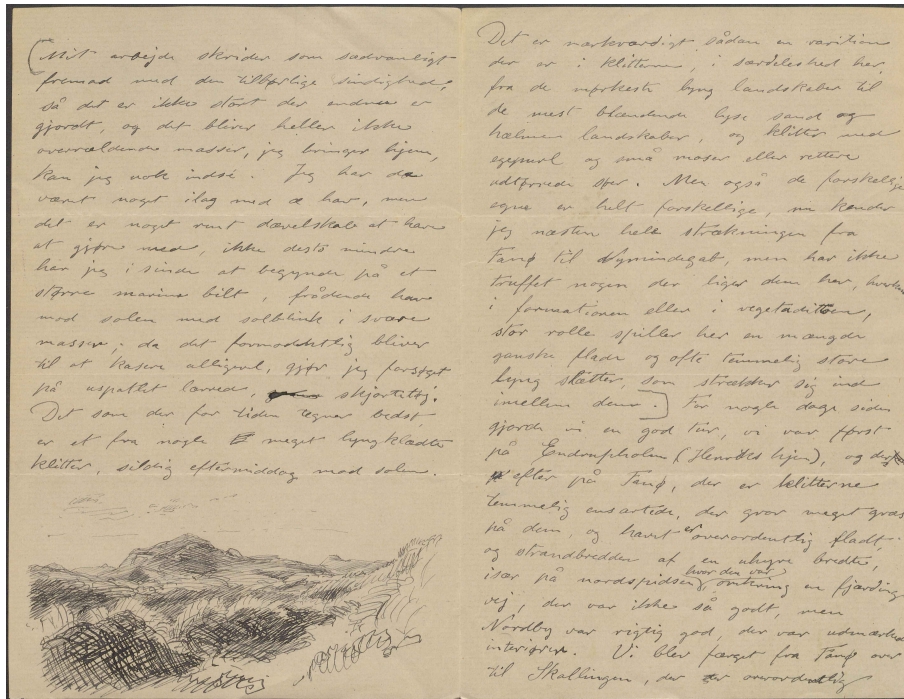 (Mit arbejde skrider som sædvanligt
fremad med den tilbørlige sindighed,
så det er ikke stort der endnu er
gjordt, og det bliver heller ikke
overvældende masser, jeg bringer hjem,
kan jeg nok indsé. Jeg har da
været noget ilag med æ hav, men
det er noget rent dævelskab at have
at gjøre med, ikke desto mindre
har jeg i sinde at begynde på et
større marine bilt, frådende hav
mod solen med solblink i svære
masser; da det formodentlig bliver
til at kasere alligevel, gjør jeg forsøget
på uspættet lærred, skjortetøj.
Det som der for tiden tegner bedst,
er et fra nogle meget lyngklædte
klitter, sildig eftermiddag mod solen.
Det er mærkværdigt sådan en varition
der er i klitterne, i særdeleshed her,
fra de mørkeste lyng landskaber til
de mest blændende lyse sand og
hælmen landskaber, og klitter med
og små moser eller rettere
udtørrede søer. Men også de forskellige
egne er helt forskellige, nu kender
jeg næsten hele strækningen fra
Fanø til Nymindegab, men har ikke
truffet nogen der liger dem her, hverken
i formationen eller i vegetatitoen,
stor rolle spiller her en mængde
ganske flade og ofte temmelig store
lyng sletter, som strækker sig ind
imellem dem.] For nogle dage siden
gjorde vi en god tur, vi var først
på Endrupholm (Henriks hjem), og
efter på Fanø, der er klitterne
temmelig ensartede, der gror meget græs
på dem, og havet er overordentlig fladt,
og strandbredden af en uhyre bredte,
især på nordspidsen, hvor den var omkring en fjerding
vej, der var ikke så godt, men
Nordby var rigtig god, der var udmærkede
interiører. Vi blev færget fra Fanø over
til Skallingen, der er overordentlig